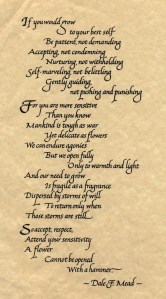 If you would grow
To your best self
Be patient, not demanding
Accepting, not condemning
Nurturing, not withholding
Self-marveling, not belittling
Gently guiding,
not pushing and punishing
For you are more sensitive
Than you know
Mankind is tough as war
Yet delicate as flowers
We can endure agonies
But we open fully
Only to warmth and light
And our need to grow
Is fragile as a fragrance
Dispersed by storms of will
To return only when
Those storms are still....
So accept, respect,
Attend your sensitivity
A flower
Cannot be opened
With a hammer~
~ Dale F. Mead ~